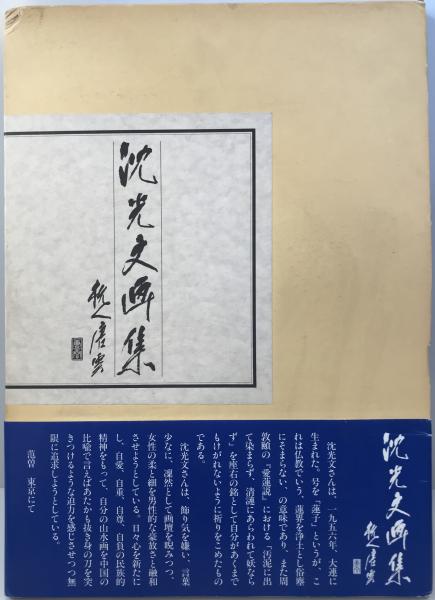 沈光文画集
沈光文さんは、一九五六年、大連に
生まれた。号を『蓮子』というが、こ
れは仏教でいう、蓮界を浄土とし俗塵
にそまらない、の意味であり、また周
敦頤の『愛蓮説』における『汚泥に出
て染まらず、清漣にあらわれて妖なら
ず』を座右の銘として自分があくまで
もけがれないように祈りをこめたもの
である。
沈光文さんは、飾り気を嫌い、言葉
少なに、凜然として画壇を睨みつつ、
女性の柔と細を男性的な豪放さと融和
させようとしている。日々心を新たに
し、自愛、自重、自尊、自負の民族的
精神をもって、自分の山水画を中国の
比喩で言えばあたかも抜き身の刀を突
きつけるような迫力を感じさせつつ無
限に追求しようとしている。
范曽 東京にて
沈光文画集